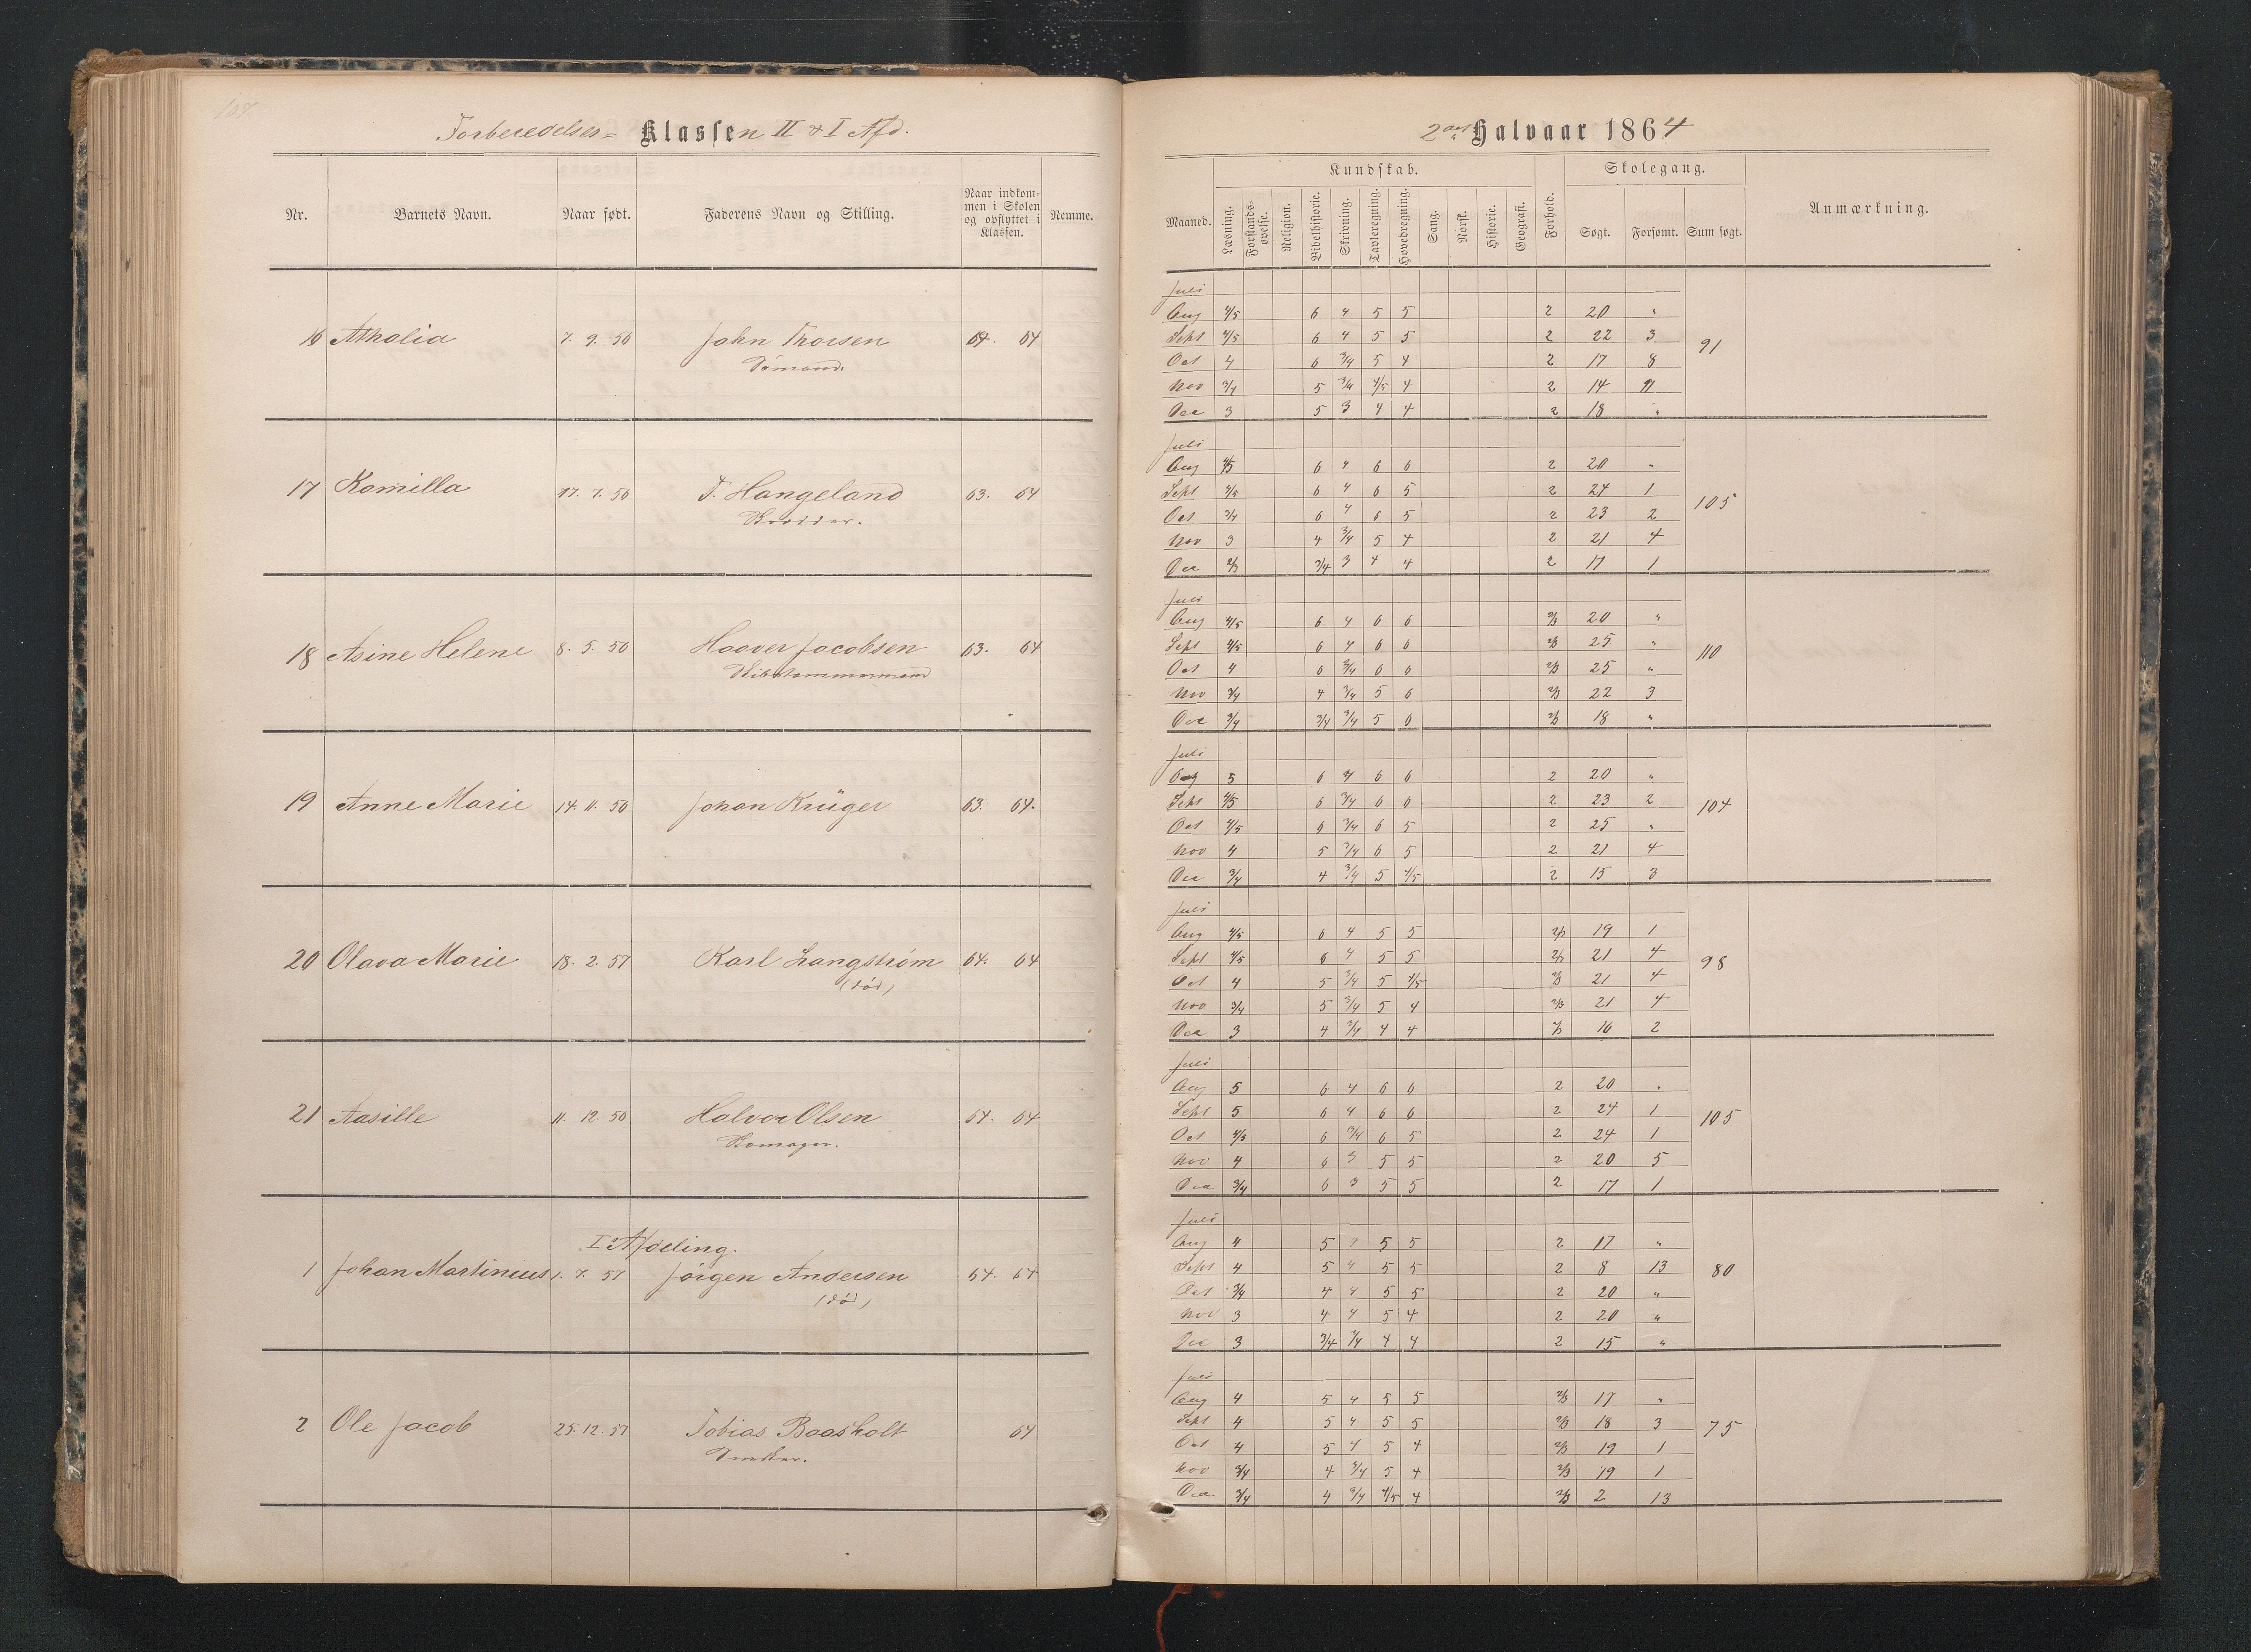 107
Forberedelses= Klassen II & I Afd.
Nr.
Barnets Navn.
Naar født.
Faderens Navn og Stilling.
Naar indkommen i Skolen og opflyttet i Klassen.
Nemme.
16 Atholia 7. 9. 56 John Thorsen 64. 64
Sømand.
17 Kamilla 17. 7. 56 T. Hangeland 63. 64
18 Asine Helene 8. 5. 56 Haaver Jacobsen 63. 64
Skibstømmermand
19 Anne Marie 14. 11. 56 Johan Krüger 63. 64.
20 Olava Marie 18. 2. 57 Karl Langstrøm 64. 64
(død)
21 Aasille 11. 12. 56 Halvor Olsen 64. 64
I Afdeling.
1 Johan Martinius 1. 7. 57 Jörgen Andersen 64. 64
(död)
2 Ole Jacob 25. 12. 57 Tobias Baasholt 64
Snedker.
2det Halvaar 1864
Maaned.
Kundskab.
Læsning.
Forstandsøvelse.
Religion.
Bibelhistorie.
Skrivning.
Tavleregning.
Hovedregning.
Sang.
Norsk.
Historie.
Geografi.
Forhold.
Skolegang.
Søgt.
Forsømt.
Sum søgt.
Anmærkning.
Juli
Aug 4/5 6 4 5 5 2 20 "
Sept 4/5 6 4 5 5 2 22 3
91
Oct 4 6 3/4 5 4 2 17 8
Nov 3/4 5 3/4 4/5 4 2 14 11
Dec 3 5 3 4 4 2 18 "
Juli
Aug 4/5 6 4 6 6 2 20 "
Sept 4/5 6 4 6 5 2 24 1
105
Oct 3/4 6 4 6 5 2 23 2
Nov 3 4 3/4 5 4 2 21 4
Dec 2/3 3/4 3 4 4 2 17 1
Juli
Aug 4/5 6 4 6 6 2/3 20 "
Sept 4/5 6 4 6 6 2/3 25 "
110
Oct 4 6 3/4 6 6 2/3 25 "
Nov 3/4 4 3/4 5 6 2/3 22 3
Dec 3/4 3/4 3/4 5 6 2/3 18 "
Juli
Aug 5 6 4 6 6 2 20 "
Sept 4/5 6 3/4 6 6 2 23 2
104
Oct 4/5 6 3/4 6 5 2 25 "
Nov 4 5 3/4 6 5 2 21 4
Dec 3/4 4 3/4 5 4/5 2 15 3
Juli
Aug 4/5 6 4 5 5 2/3 19 1
Sept 4/5 6 4 5 5 2/3 21 4
98
Oct 4 5 3/4 5 4/5 2/3 21 4
Nov 3/4 5 3/4 5 4 2/3 21 4
Dec 3 4 3/4 4 4 2/3 16 2
Juli
Aug 5 6 4 6 6 2 20 "
Sept 5 6 4 6 6 2 24 1
105
Oct 4/5 6 3/4 6 5 2 24 1
Nov 4 6 3 5 5 2 20 5
Dec 3/4 6 3 5 5 2 17 1
Juli
Aug 4 5 4 5 5 2 17 "
Sept 4 5 4 5 5 2 8 13
80
Oct 3/4 4 4 5 5 2 20 "
Nov 3 4 4 5 4 2 20 "
Dec 3 3/4 3/4 4 4 2 15 "
Juli
Aug 4 5 4 5 5 2/3 17 "
Sept 4 5 4 5 5 2/3 18 3
75
Oct 4 5 4 5 4 2/3 19 1
Nov 3/4 4 3/4 5 4 2/3 19 1
Dec 3/4 4 3/4 4/5 4 2/3 2 13